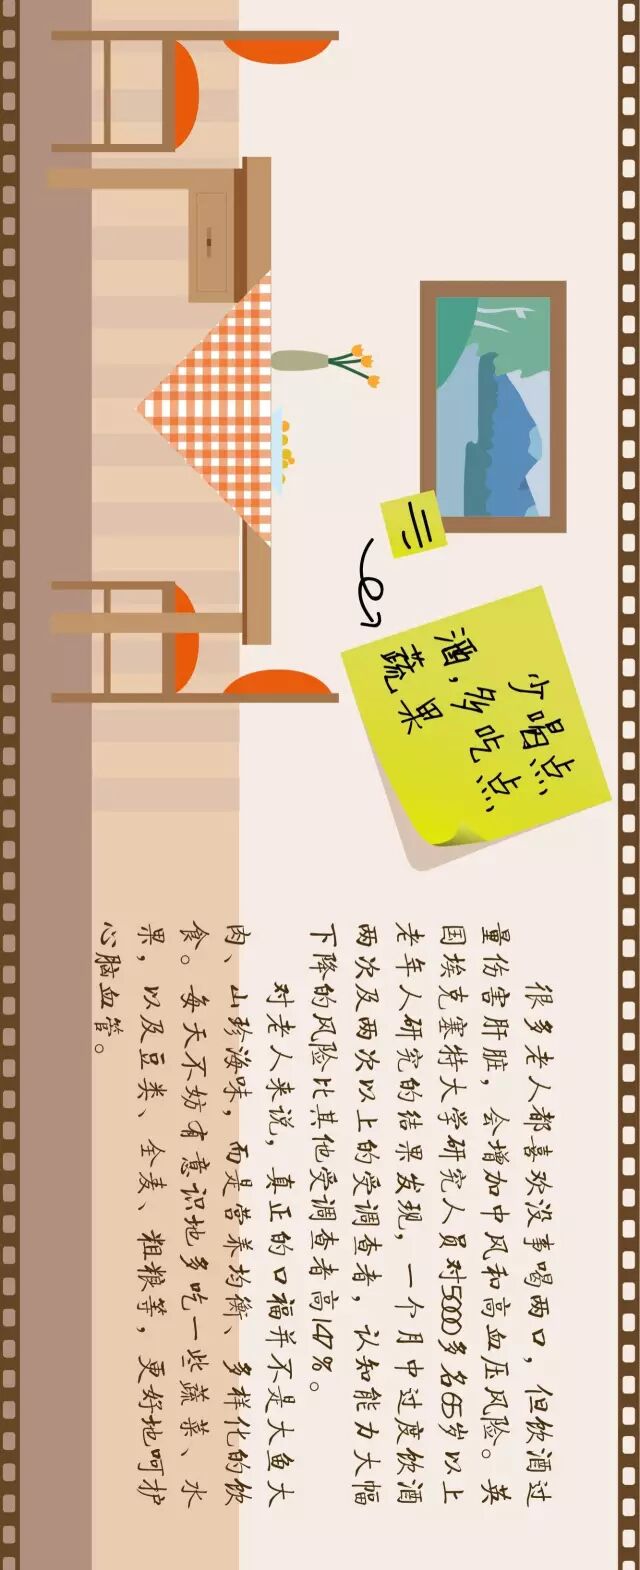 三
少喝点
酒,多吃点
蔬果
很多老人都喜欢没事喝两口,但饮酒过
量伤害肝脏,会增加中风和高血压风险。英
国埃克塞特大学研究人员对5000多名65岁以上
老年人研究的结果发现,一个月中过度饮酒
两次及两次以上的受调查者,认知能力大幅
下降的风险比其他受调查者高147%。
对老人来说,真正的口福并不是大鱼大
肉、山珍海味,而是营养均衡、多样化的饮
食。每天不妨有意识地多吃一些蔬菜、水
果,以及豆类、全麦、粗粮等,更好地呵护
心脑血管。